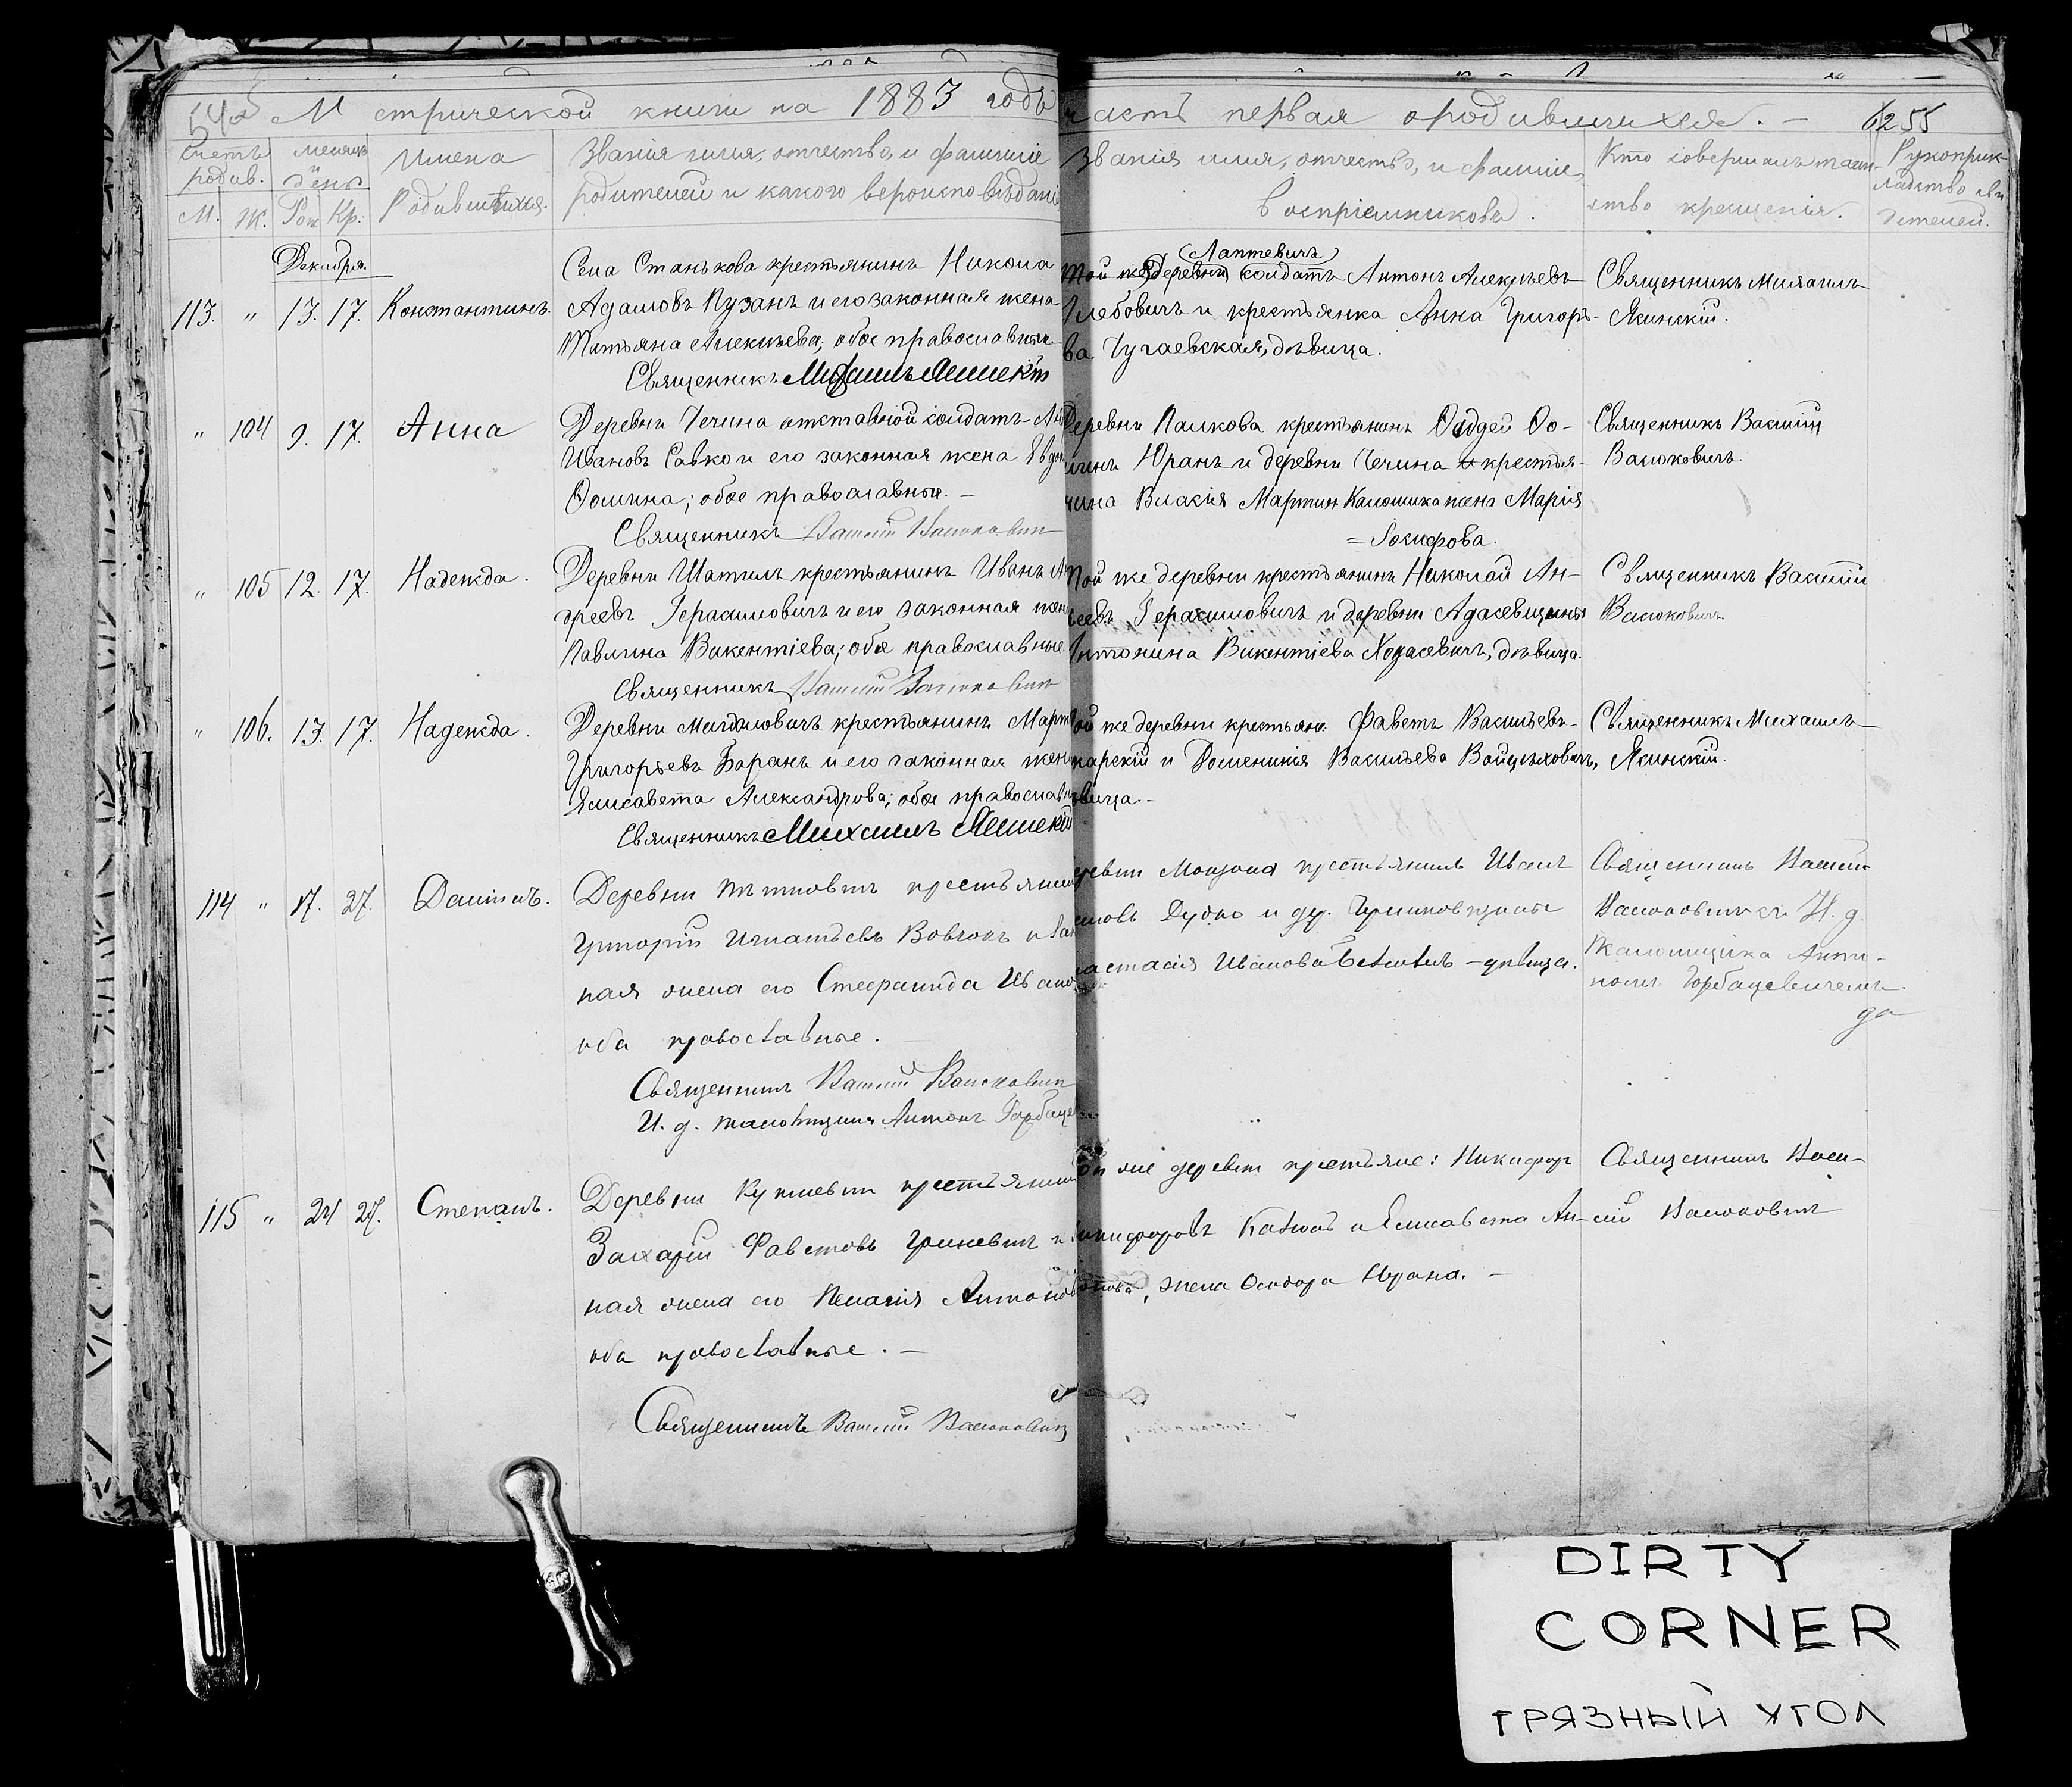 Метрической книги на 1883 годъ часть первая о родившихся. 6255
Счетъ родив. Мѣсяцъ и день Имена
М. Ж. Рож. Кр. Родившихся.
Званія имя, отчество, и фамилие
родителей и какого вероисповѣдані
Званія имя, отчество, и фамилие
воспріемниковъ.
Кто совершилъ таин-
ство крещенія.
Рукоприк-
ладство сви
детелей.
Декабря.
113. " 13. 17. Константинъ.
Села Станькова крестьянинъ Никола
Адамовъ Пузанъ и его законная жена
Татьяна Алексѣева, обое православные
Священникъ Михаилъ Ясинскій
Той же деревни Лаптевичъ солдатъ Антонъ Алексѣевъ
Глебовичъ и крестьянка Анна Григорь-
ва Чугаевская, дѣвица.
Священникъ Михаилъ
Ясинскій.
" 104 9. 17. Анна
Деревни Чечина отставной солдатъ
Ивановъ Савко и его законная жена
Ѳомина; обое православные. —
Священникъ Василій Васюковичъ
Деревни Палкова крестьянинъ Ѳаддей Ѳо-
минъ Юранъ и деревни Чечина крестья-
нина Власія Мартин жена Марія
= Іосифова.
Священникъ Василій
Васюковичъ.
" 105 12. 17. Надежда.
Деревни Шатилъ крестьянинъ Иванъ Ан
дреевъ Герасимовичъ и его законная жен
Павлина Викентіева; обое православные
Священникъ Василій Васюковичъ
Той же деревни крестьянинъ Николай Ан-
реевъ Герасимовичъ и деревни Адасевщины
Антонина Викентіева Ходасевичъ, дѣвица.
Священникъ Василій
Васюковичъ.
" 106. 13. 17. Надежда.
Деревни крестьянинъ Март
Григорьевъ Баранъ и его законная жен
Елисавета Александрова; обое православн
Священникъ Михаилъ Ясинскій
Той же деревни крестьяне Фавстъ Васильевъ
и Доменикія Васильева Войцѣховичъ,
вица. -
Священникъ Михаилъ
Ясинскій.
114 " 17. 27. Даніилъ.
Деревни крестьянин
Григорій Игнатьевъ и за
ная жена его Стефанида Ивано
оба православные.
Священникъ Василій Васюковичъ
И. д. псаломщика Антонъ Горбаце
крестьянинъ Иванъ
Дудко и дер.
настасія Иванова - дѣвица.
Священникъ Василій
Васюковичъ съ И. д.
псаломщика Анто-
номъ Горбацевичемъ.
115 " 24 27. Степанъ.
Деревни крестьянин
Захарій Фавстовъ Гриневич и
ная жена его Пелагія Антонов
оба православные. —
Священникъ Василій Васюковичъ
той же деревни крестьяне: Никифор
Никифоровъ и Елисавета Ан-
това, жена Ѳеодора —
Священникъ Васи-
лій Васюковичъ
DIRTY
CORNER
ГРЯЗНЫЙ УГОЛ